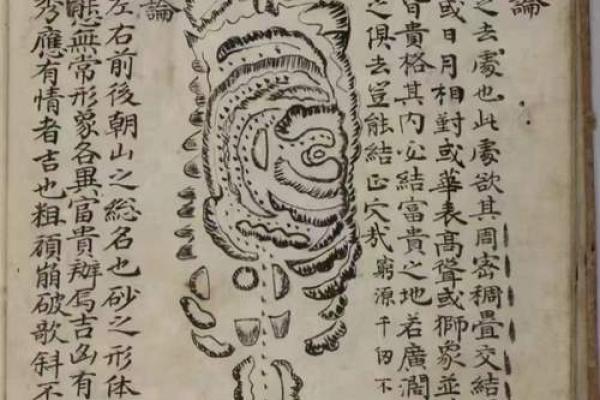 論
之去處也此處欲其周密稠疊交結
或日月相對或華表高聳或獅象並
皆貴格其內必結富貴之地若廣濶
之俱去豈能結正穴哉 窮源千囘不
論
左右前後朝山之総名也砂之形体
態無常形象各異富貴辦焉吉凶有
秀應有情者吉也粗頑崩破歌斜不